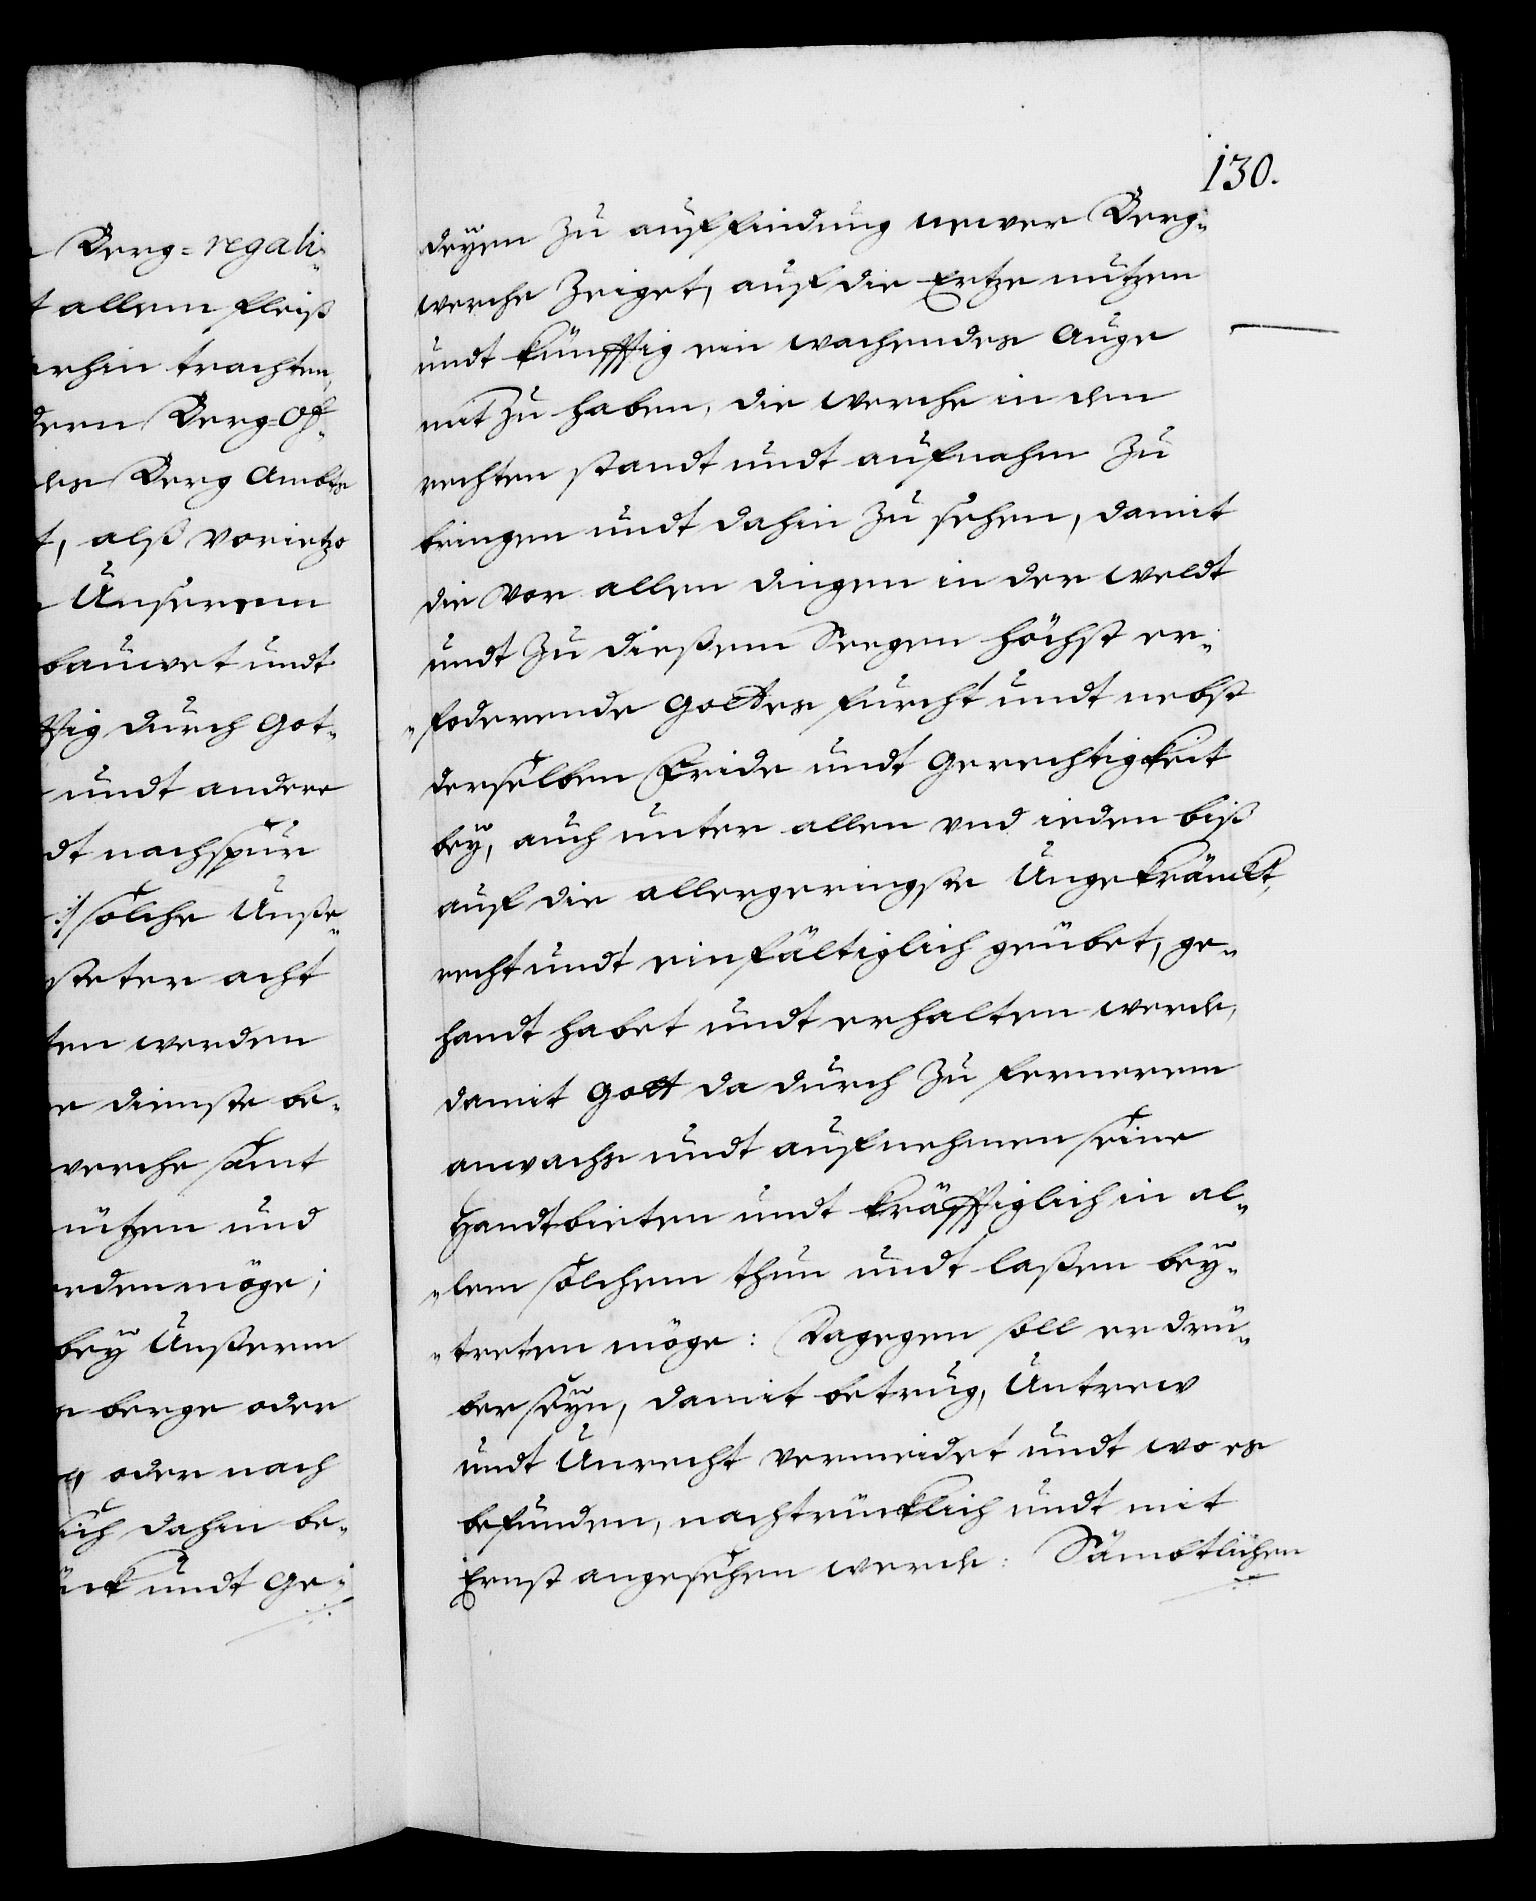 130.
Berg-regali-
allem fleiß
rhin trachten,
dern Berg-Of-
des Berg Ambts
t, alß vorietzo
Unserem
bauwet undt
ftig durch Got-
undt andere
dt nachspür
:/ solche Unße-
steter acht
ten werden
e dienste be-
wercke samt
nützen und
erden möge;
bey Unßerm
n berge oder
oder nach
sich dahin be-
ück undt Ge-
deyen zu auffindung newer Berg-
wercke Zeiget, auf die Ertze nutzen
undt künfftig ein wachendes Auge
mit zu haben, die wercke in den
rechten standt undt aufnahm zu
bringen undt dahin zu sehen, damit
die vor allen dingen in der weldt
undt zu dießem Seegen höchst er-
foderende Gottes furcht undt nebst
derselben Fride undt Gerechtigkeit
bey, auch unter allen und ieden biß
auf die allergeringste Ungekränckt,
recht undt einfältiglich geübet, ge-
handt habet undt erhalten werde,
damit Gott da durch zu fernerem
anwachs undt aufnehmen seine
Handt bieten undt kräfftiglich in al-
lem solchem thun undt laßen bey-
treten möge: Dagegen soll er drü-
ber seyn, damit betrug, Untrew
undt Unrecht vermeidet undt wo es
befunden, nachtrücklich undt mit
Ernst angesehen werde: Sämbtlichen